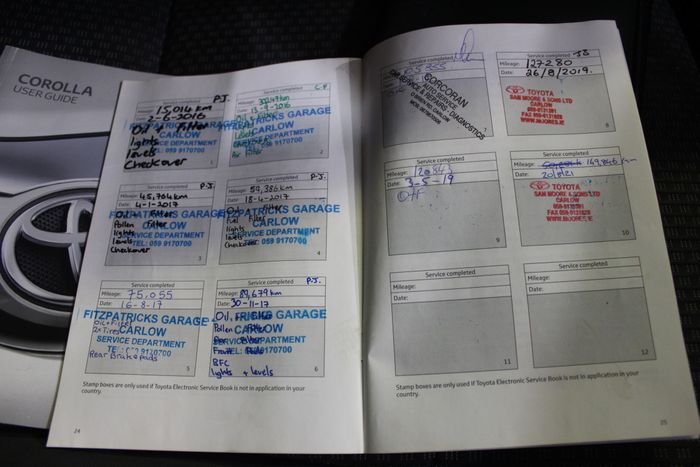 COROLLA
USER GUIDE
Service completed P.J.
Mileage: 15,014 km
Date: 2-6-2016
Oil + Filter
lights
levels
Checkover
FITZPATRICKS GARAGE
CARLOW
SERVICE DEPARTMENT
TEL: 059 9170700
1
Service completed
Date: 13-9-2016
2
Service completed P.J.
Mileage: 45,764 km
Date: 4-1-2017
Oil + Filter
Pollen Filter
lights
levels
Checkover
FITZPATRICKS GARAGE
CARLOW
SERVICE DEPARTMENT
TEL: 059 9170700
3
Service completed P.J.
Mileage: 59,386 km
Date: 18-4-2017
Fuel Filter
lights
levels
Checkover
FITZPATRICKS GARAGE
CARLOW
SERVICE DEPARTMENT
TEL: 059 9170700
4
Service completed
Mileage: 75.055
Date: 16-8-17
FITZPATRICKS GARAGE
Oil + Filter
2x Tires
CARLOW
SERVICE DEPARTMENT
Rear Brake pads
5
Service completed P.J.
Mileage: 89,679 km
Date: 30-11-17
Oil + Filter
Pollen Filter
BFC
lights + levels
FITZPATRICKS GARAGE
CARLOW
SERVICE DEPARTMENT
TEL: 059 9170700
6
Stamp boxes are only used if Toyota Electronic Service Book is not in application in your
country.
24
Service completed
CORCORAN
AUTO SERVICES
CAR SERVICE & REPAIR DIAGNOSTICS
7
Service completed JB
Mileage: 127280
Date: 26/8/2019.
TOYOTA
SAM MOORE & SONS LTD
CARLOW
059-9131391
FAX 059-9131828
WWW.MOORES.IE
8
Service completed
Date: 3-5-19
9
Service completed
Mileage: 149,846 km
Date:
TOYOTA
SAM MOORE & SONS LTD
CARLOW
FAX 059-9131828
WWW.MOORES.IE
10
Service completed
Mileage:
Date:
11
Service completed
Mileage:
Date:
12
Stamp boxes are only used if Toyota Electronic Service Book is not in application in your
country.
25